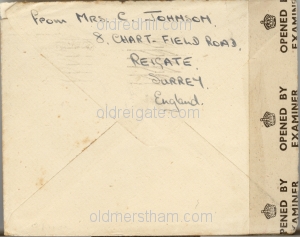 From Mrs. C. Johnson.
8, Chart-Field Road,
Reigate,
Surrey,
England.
www.oldreigate.com
oldmerstham.com
OPENED BY
EXAMINER
OPENED BY
EXAMINER
OPENED BY
EXAMINER